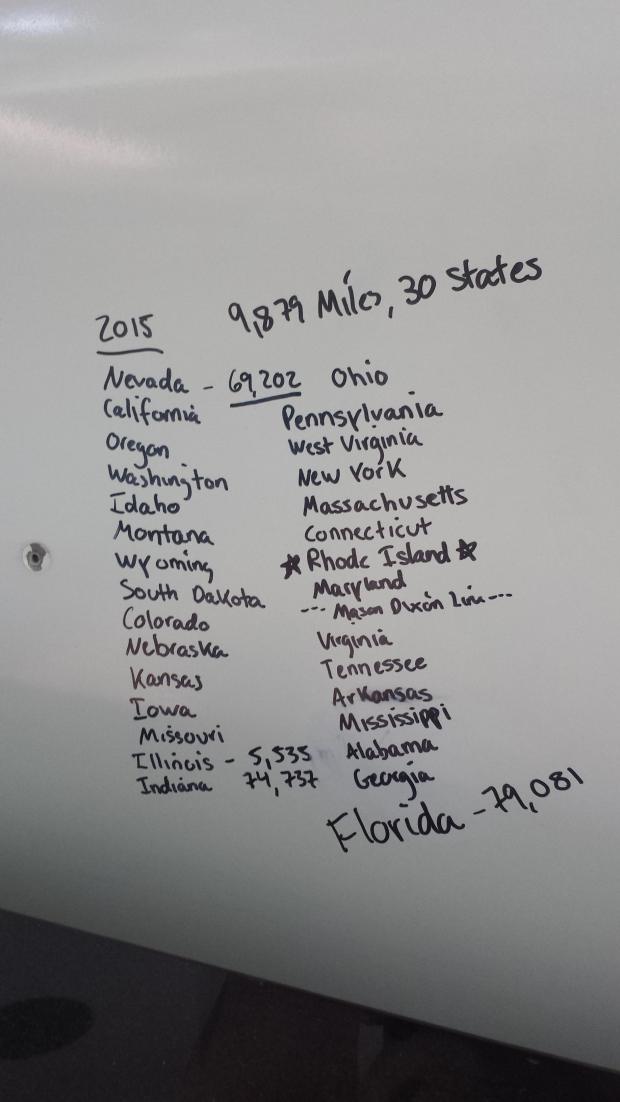 2015
9,879 Miles, 30 States
Nevada - 69,202
California
Oregon
Washington
Idaho
Montana
Wyoming
South Dakota
Colorado
Nebraska
Kansas
Iowa
Missouri
Illinois - 5,535
Indiana 74,737
Ohio
Pennsylvania
West Virginia
New York
Massachusetts
Connecticut
☆ Rhode Island ☆
Maryland
--- Mason Dixon Line ---
Virginia
Tennessee
Arkansas
Mississippi
Alabama
Georgia
Florida - 79,081